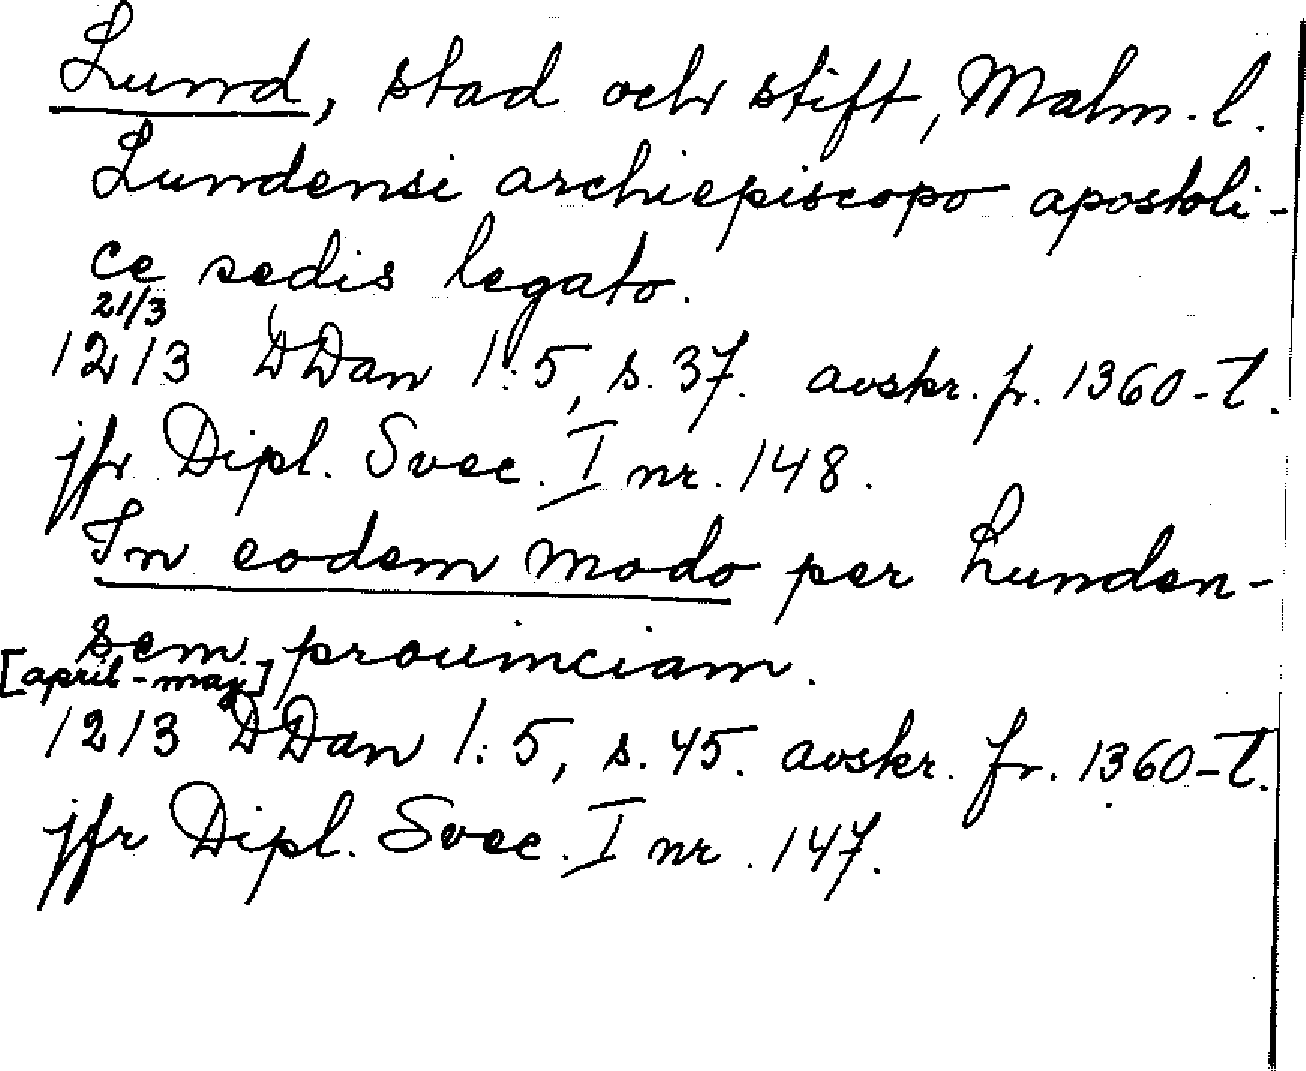 Lund, stad och stift, Malm. l.
Lundensi archiepiscopo apostoli-
ce sedis legato.
21/3
1213 DDan 1:5, s. 37. avskr. fr. 1360-t.
jfr Dipl. Svec. I nr. 148.
In eodem modo per Lunden-
sem prouinciam.
[april-maj]
1213 DDan 1:5, s. 45. avskr. fr. 1360-t.
jfr Dipl. Svec. I nr. 147.